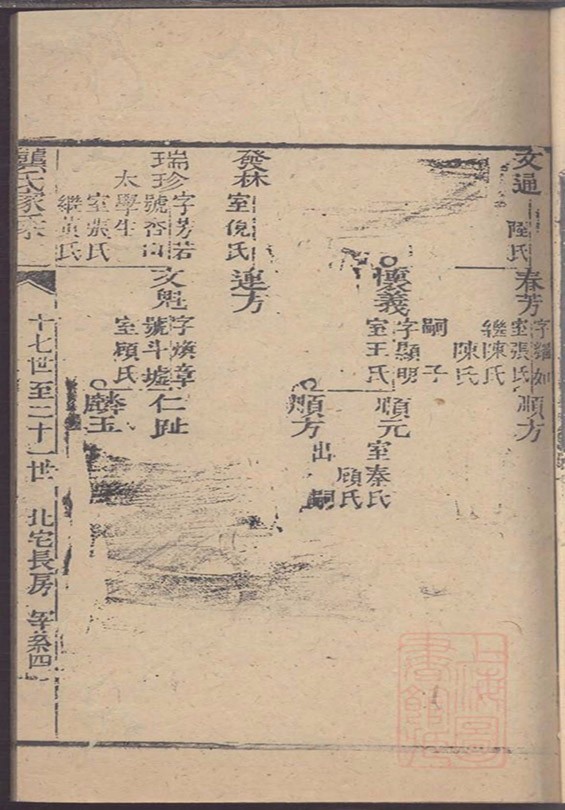 文通
陸氏
春芳
字繼如
室張氏
繼陳氏
陳氏
順方
懷義
嗣子
字顯明
室王氏
順元
室秦氏
顧氏
順方
出嗣
發林
室倪氏
連方
瑞珍
字芳若
太學生
室張氏
繼黃氏
文魁
字煥章
號斗墟
室顧氏
仁趾
麟玉
龔氏家乘
十七世至二十一世
北宅長房
等系四
上海圖書館藏